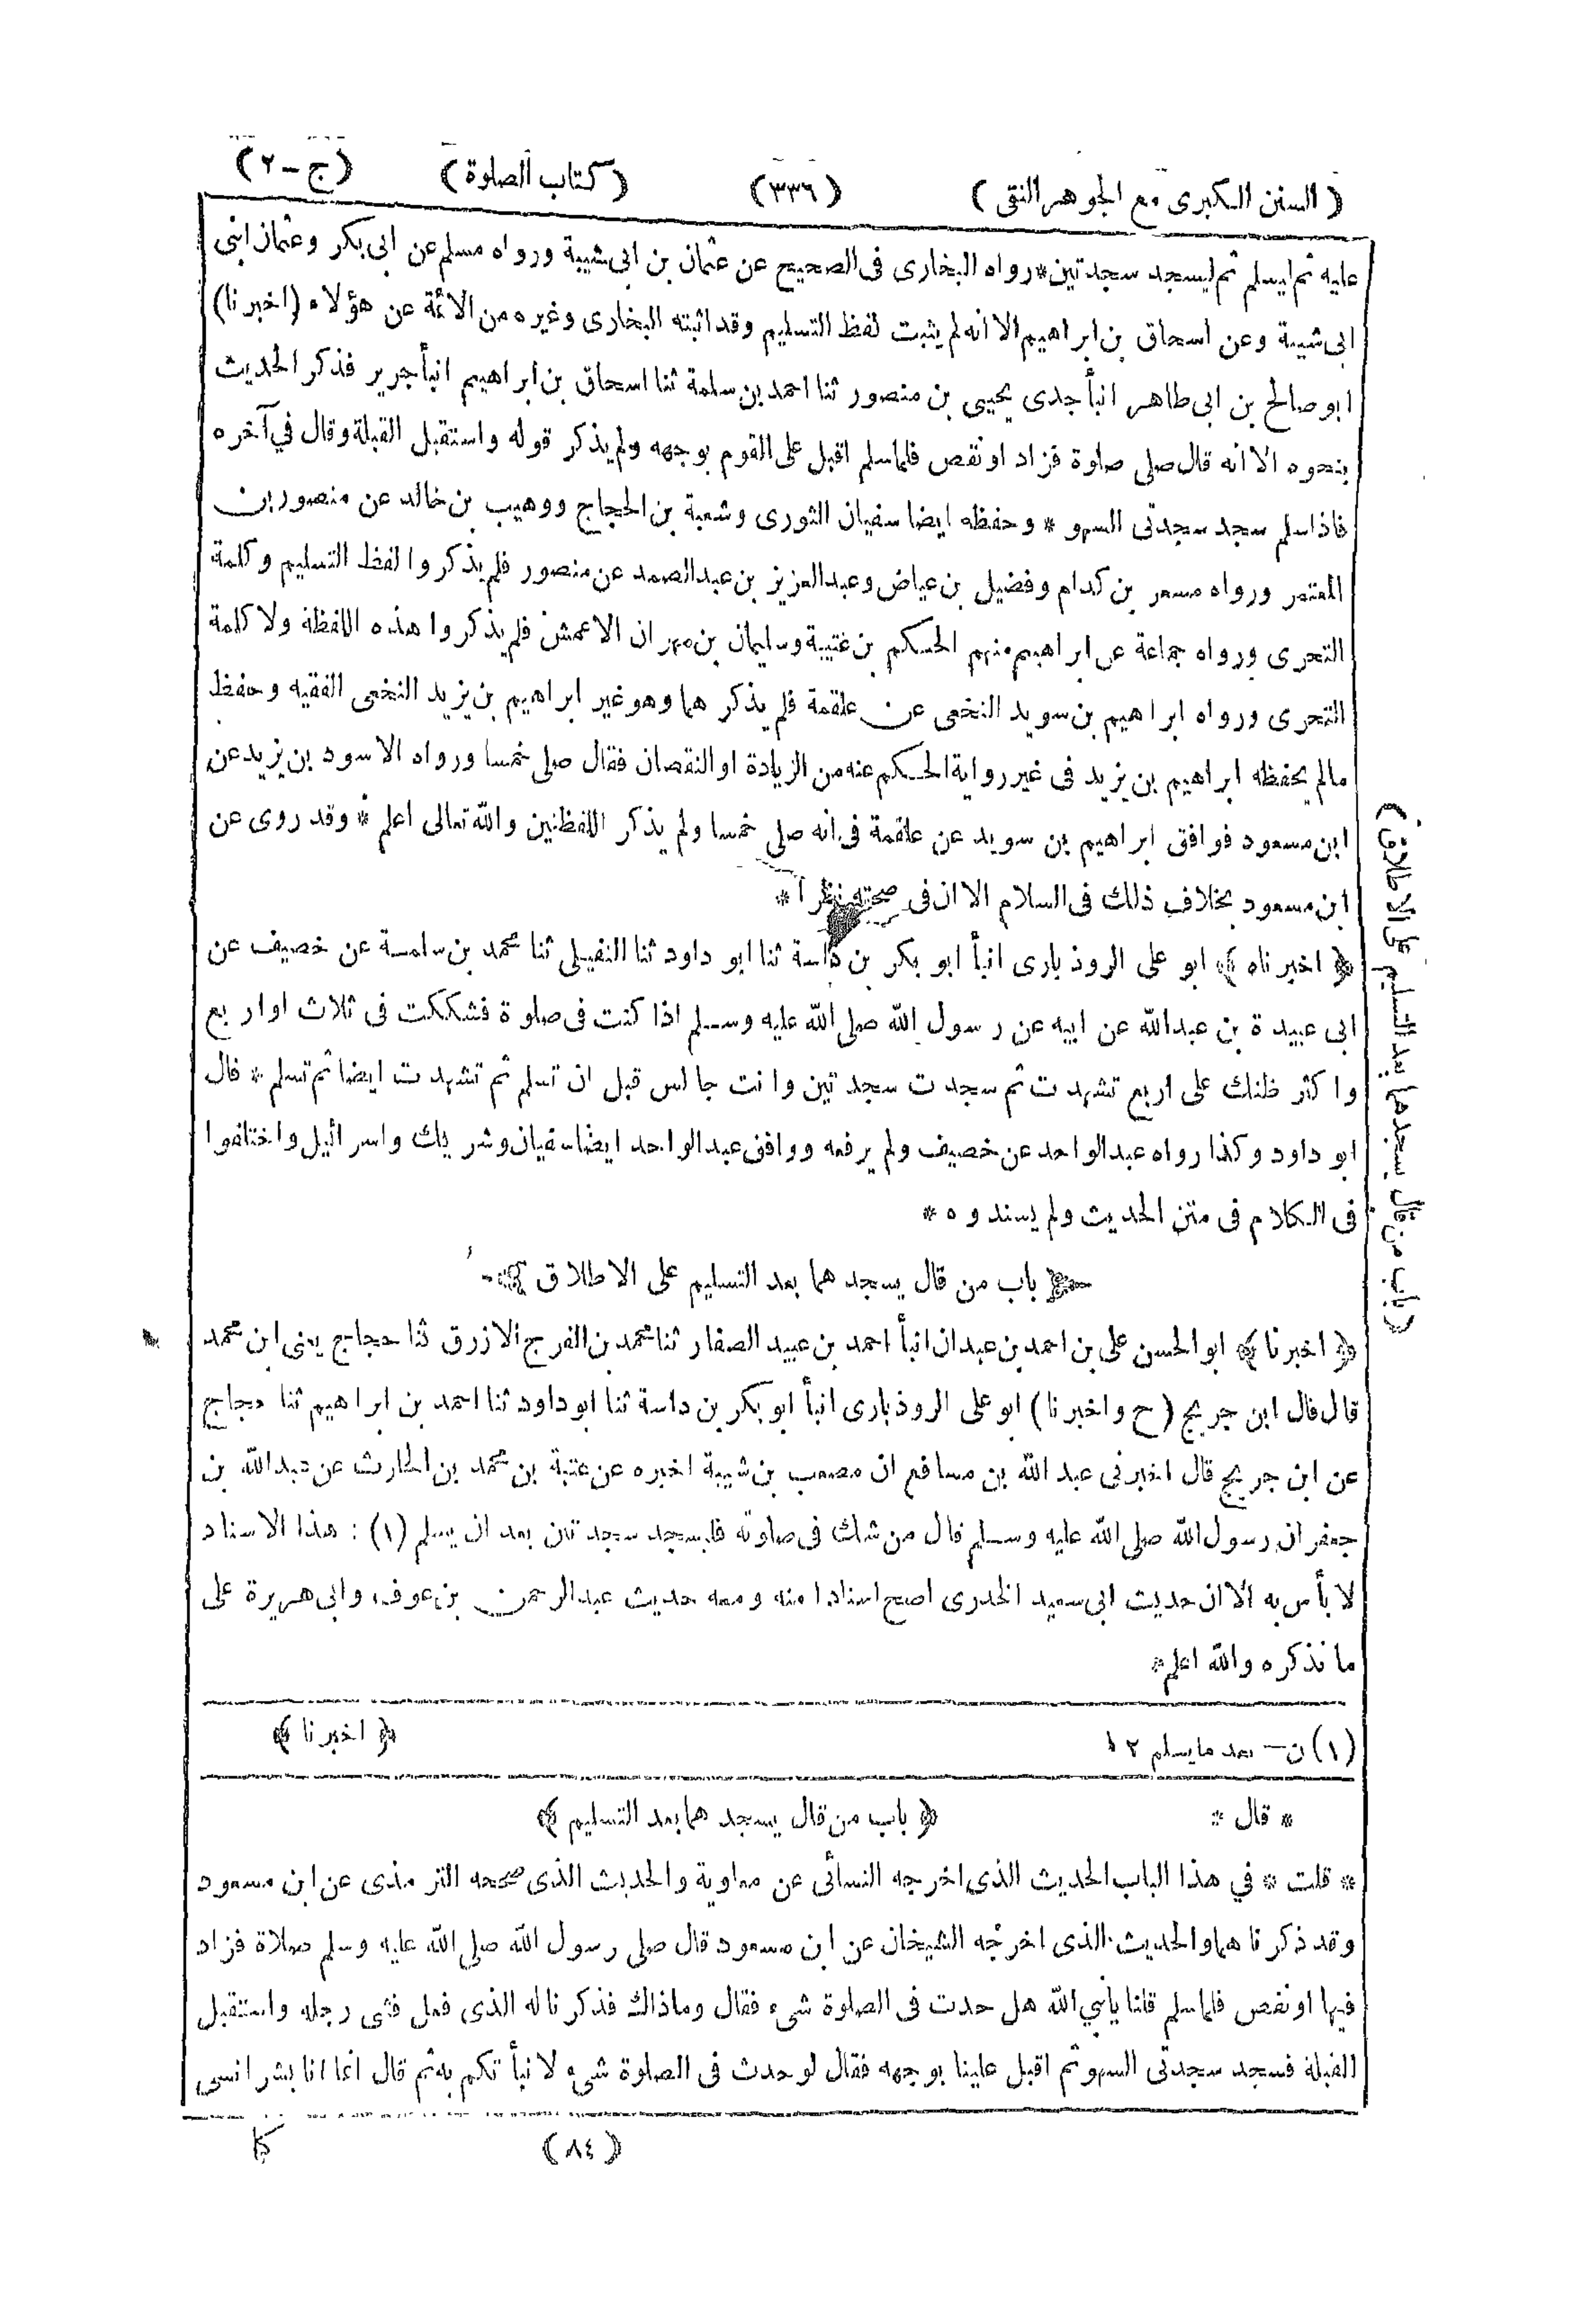 ( السنن الكبرى مع الجوهر النقى ) (٣٣٦) ( كتاب الصلوة ) (ج - ٢)
عليه ثم ليسلم ثم ليسجد سجدتين * رواه البخارى فى الصحيح عن عثمان بن ابى شيبة ورواه مسلم عن ابى بكر وعثمان ابنى
ابى شيبة وعن اسحاق بن ابراهيم الا انه لم يثبت لفظ التسليم وقد اثبته البخارى وغيره من الائمة عن هؤلاء (اخبرنا)
ابو صالح بن ابى طاهر انبأ جدى يحيى بن منصور ثنا احمد بن سلمة ثنا اسحاق بن ابراهيم انبأ جرير فذكر الحديث
بنحوه الا انه قال صلى صلوة فزاد او نقص فلما سلم اقبل على القوم بوجهه ولم يذكر قوله واستقبل القبلة وقال في آخره
فاذا سلم سجد سجدتى السهو * وحفظه ايضا سفيان الثورى وشعبة بن الحجاج ووهيب بن خالد عن منصور بن
المعتمر ورواه مسعر بن كدام وفضيل بن عياض وعبد العزيز بن عبد الصمد عن منصور فلم يذكروا لفظ التسليم وكلمة
التحرى ورواه جماعة عن ابراهيم منهم الحكم بن عتيبة وسليمان بن مهران الاعمش فلم يذكروا هذه اللفظة ولا كلمة
التحرى ورواه ابراهيم بن سويد النخعى عن علقمة فلم يذكرهما وهو غير ابراهيم بن يزيد النخعى الفقيه وحفظ
مالم يحفظه ابراهيم بن يزيد فى غير رواية الحكم عنه من الزيادة او النقصان فقال صلى خمسا ورواه الاسود بن يزيد عن
ابن مسعود فوافق ابراهيم بن سويد عن علقمة فى انه صلى خمسا ولم يذكر اللفظتين والله تعالى اعلم * وقد روى عن
ابن مسعود بخلاف ذلك فى السلام الا ان فى صحته نظرا *
﴿ اخبرناه ﴾ ابو على الروذبارى انبأ ابو بكر بن داسة ثنا ابو داود ثنا النفيلى ثنا محمد بن سلمة عن خصيف عن
ابى عبيدة بن عبد الله عن ابيه عن رسول الله صلى الله عليه وسلم اذا كنت فى صلوة فشككت فى ثلاث او اربع
واكثر ظنك على اربع تشهدت ثم سجدت سجدتين وانت جالس قبل ان تسلم ثم تشهدت ايضا ثم تسلم * قال
ابو داود وكذا رواه عبد الواحد عن خصيف ولم يرفعه ووافق عبد الواحد ايضا سفيان وشريك واسرائيل واختلفوا
فى الكلام فى متن الحديث ولم يسندوه *
باب من قال يسجدهما بعد التسليم على الاطلاق
﴿ اخبرنا ﴾ ابو الحسن على بن احمد بن عبدان انبأ احمد بن عبيد الصفار ثنا محمد بن الفرج الازرق ثنا حجاج يعنى ابن محمد
قال قال ابن جريج ( ح واخبرنا ) ابو على الروذبارى انبأ ابو بكر بن داسة ثنا ابو داود ثنا احمد بن ابراهيم ثنا حجاج
عن ابن جريج قال اخبرنى عبد الله بن مسافع ان مصعب بن شيبة اخبره عن عتبة بن محمد بن الحارث عن عبد الله بن
جعفر ان رسول الله صلى الله عليه وسلم قال من شك فى صلوته فليسجد سجدتين بعد ان يسلم (١) : هذا الاسناد
لا بأس به الا ان حديث ابى سعيد الخدرى اصح اسنادا منه ومعه حديث عبد الرحمن بن عوف وابى هريرة على
ما نذكره والله اعلم *
( باب من قال يسجدهما بعد التسليم على الاطلاق )
(١) ن — بعد ما يسلم ١٢ ﴿ اخبرنا ﴾
* قال * ﴿ باب من قال يسجدهما بعد التسليم ﴾
* قلت * في هذا الباب الحديث الذى اخرجه النسائى عن معاوية والحديث الذى صححه الترمذى عن ابن مسعود
وقد ذكرناهما والحديث الذى اخرجه الشيخان عن ابن مسعود قال صلى رسول الله صلى الله عليه وسلم صلاة فزاد
فيها او نقص فلما سلم قلنا يا نبي الله هل حدث فى الصلوة شىء فقال وما ذاك فذكرنا له الذى فعل فثنى رجله واستقبل
القبلة فسجد سجدتى السهو ثم اقبل علينا بوجهه فقال لو حدث فى الصلوة شىء لانبأتكم به ثم قال انما انا بشر انسى
(٨٤) كما